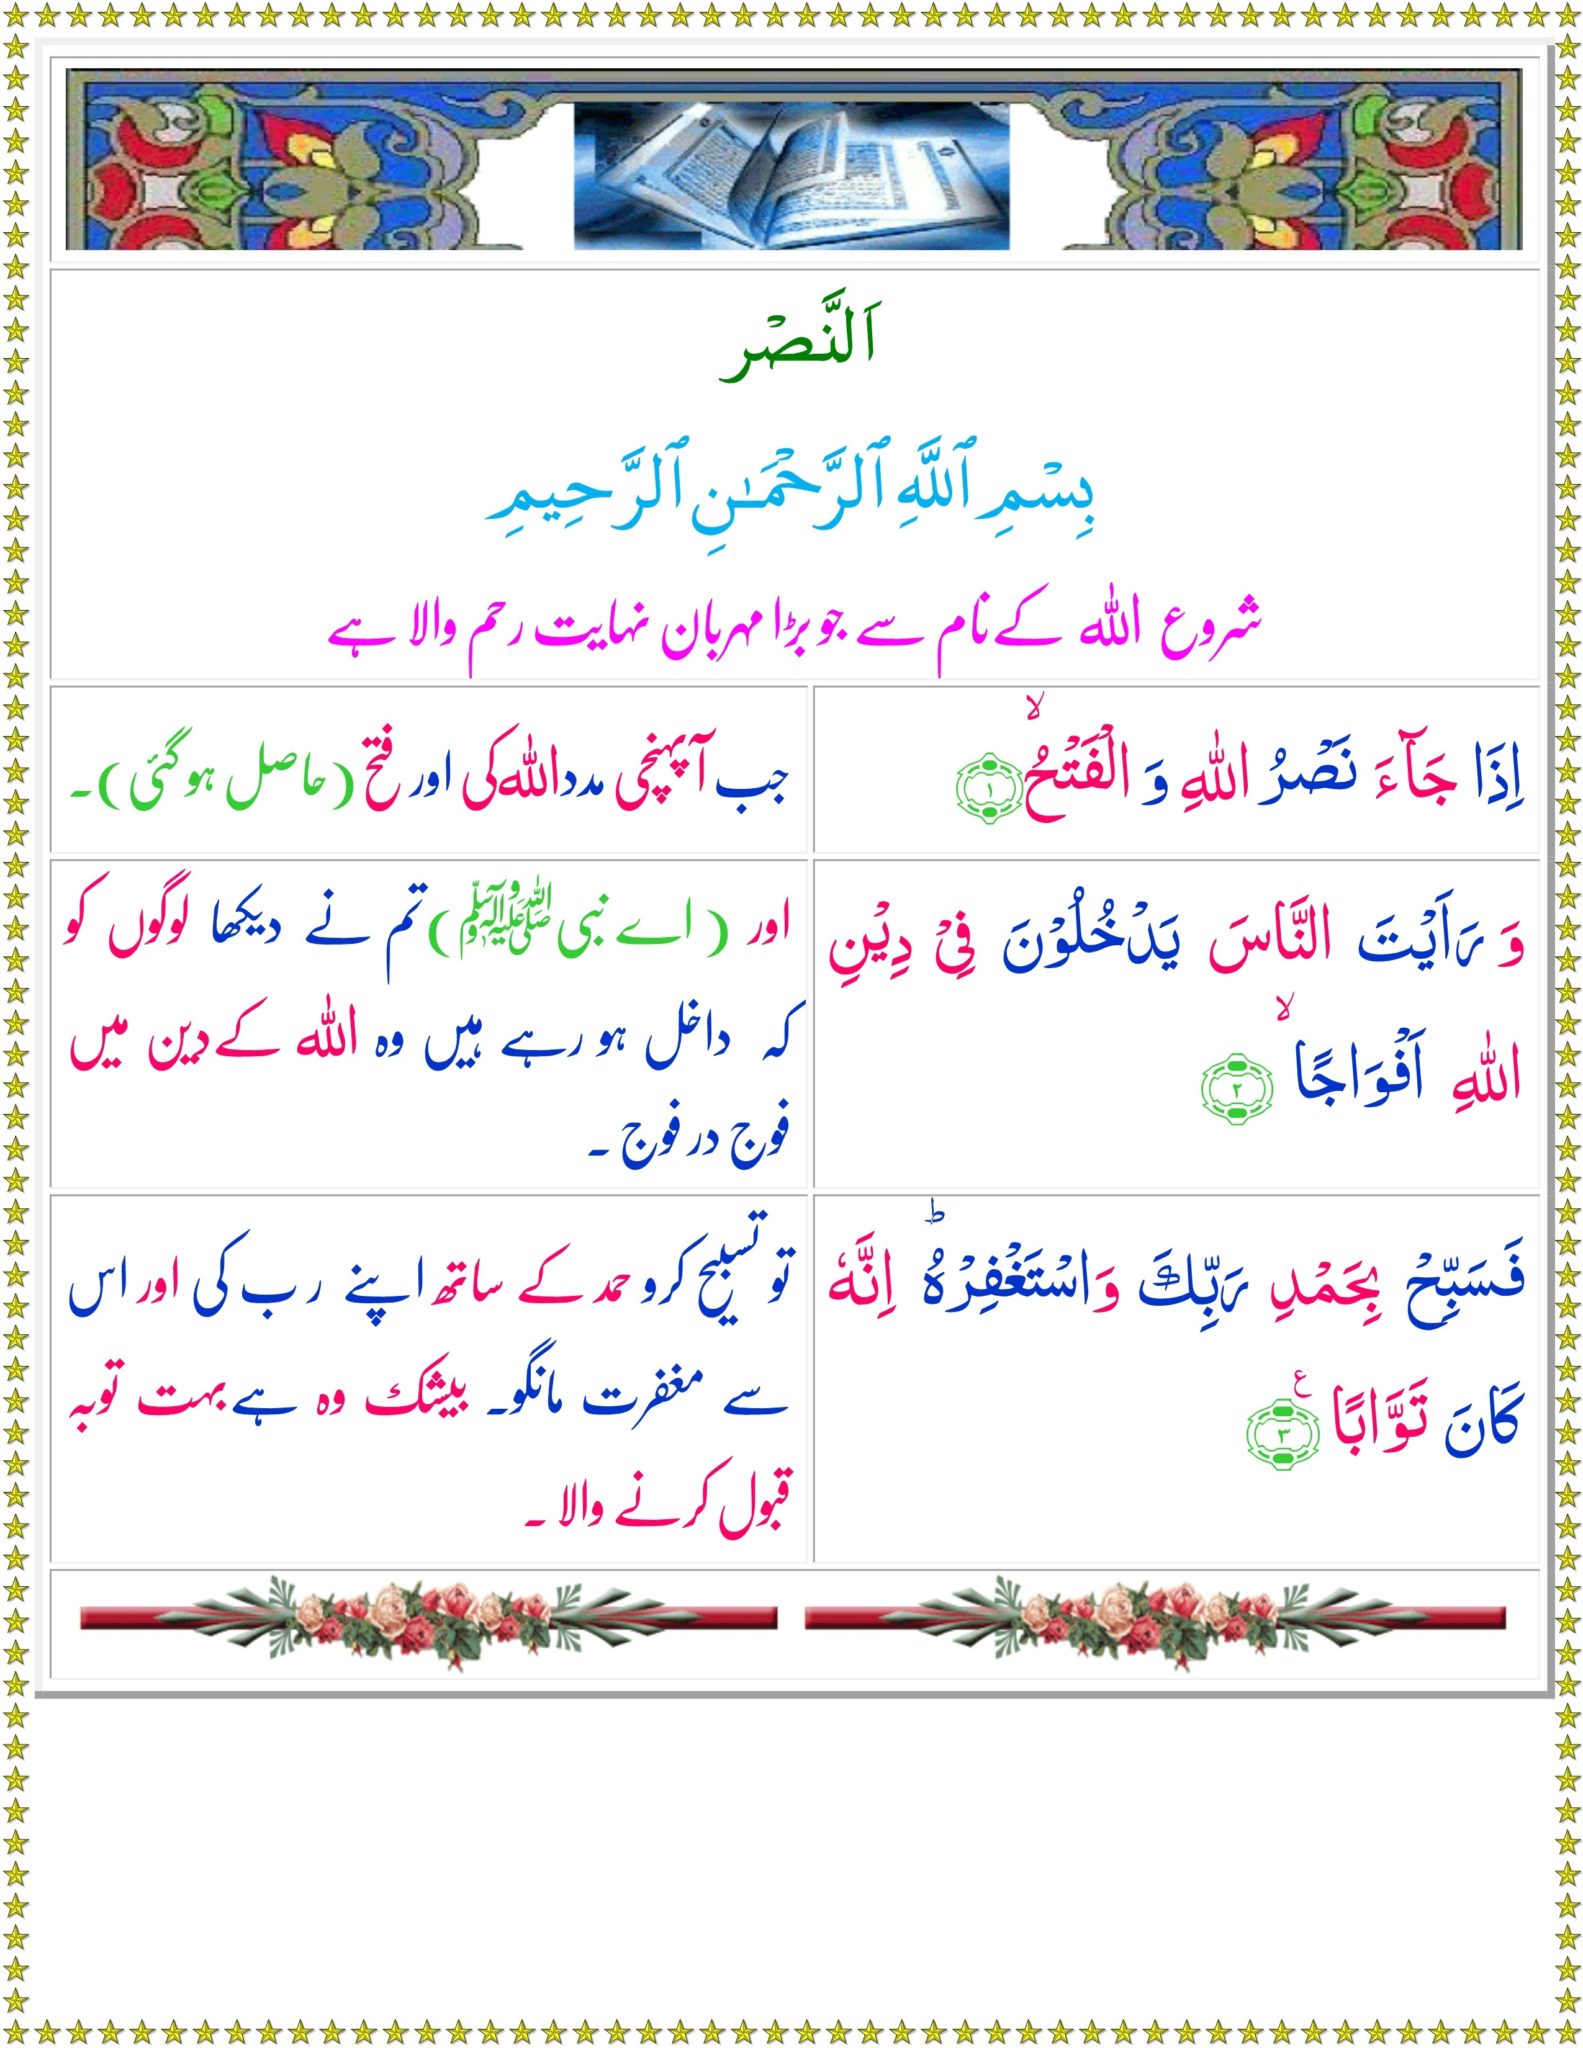 اَلنَّصْر
بِسْمِ ٱللَّهِ ٱلرَّحْمَـٰنِ ٱلرَّحِيمِ
شروع اللہ کے نام سے جو بڑا مہربان نہایت رحم والا ہے
اِذَا جَآءَ نَصْرُ اللّٰهِ وَ الْفَتْحُۙ ۝۱
جب آ پہنچی مدد اللہ کی اور فتح (حاصل ہو گئی)۔
وَ رَاَیْتَ النَّاسَ یَدْخُلُوْنَ فِیْ دِیْنِ
اللّٰهِ اَفْوَاجًاۙ ۝۲
اور ( اے نبی ﷺ) تم نے دیکھا لوگوں کو
کہ داخل ہو رہے ہیں وہ اللہ کے دین میں
فوج در فوج ۔
فَسَبِّحْ بِحَمْدِ رَبِّكَ وَاسْتَغْفِرْهُ ؕ اِنَّهٗ
كَانَ تَوَّابًا ۠ ۝۳ ع
تو تسبیح کرو حمد کے ساتھ اپنے رب کی اور اس
سے مغفرت مانگو۔ بیشک وہ ہے بہت توبہ
قبول کرنے والا ۔